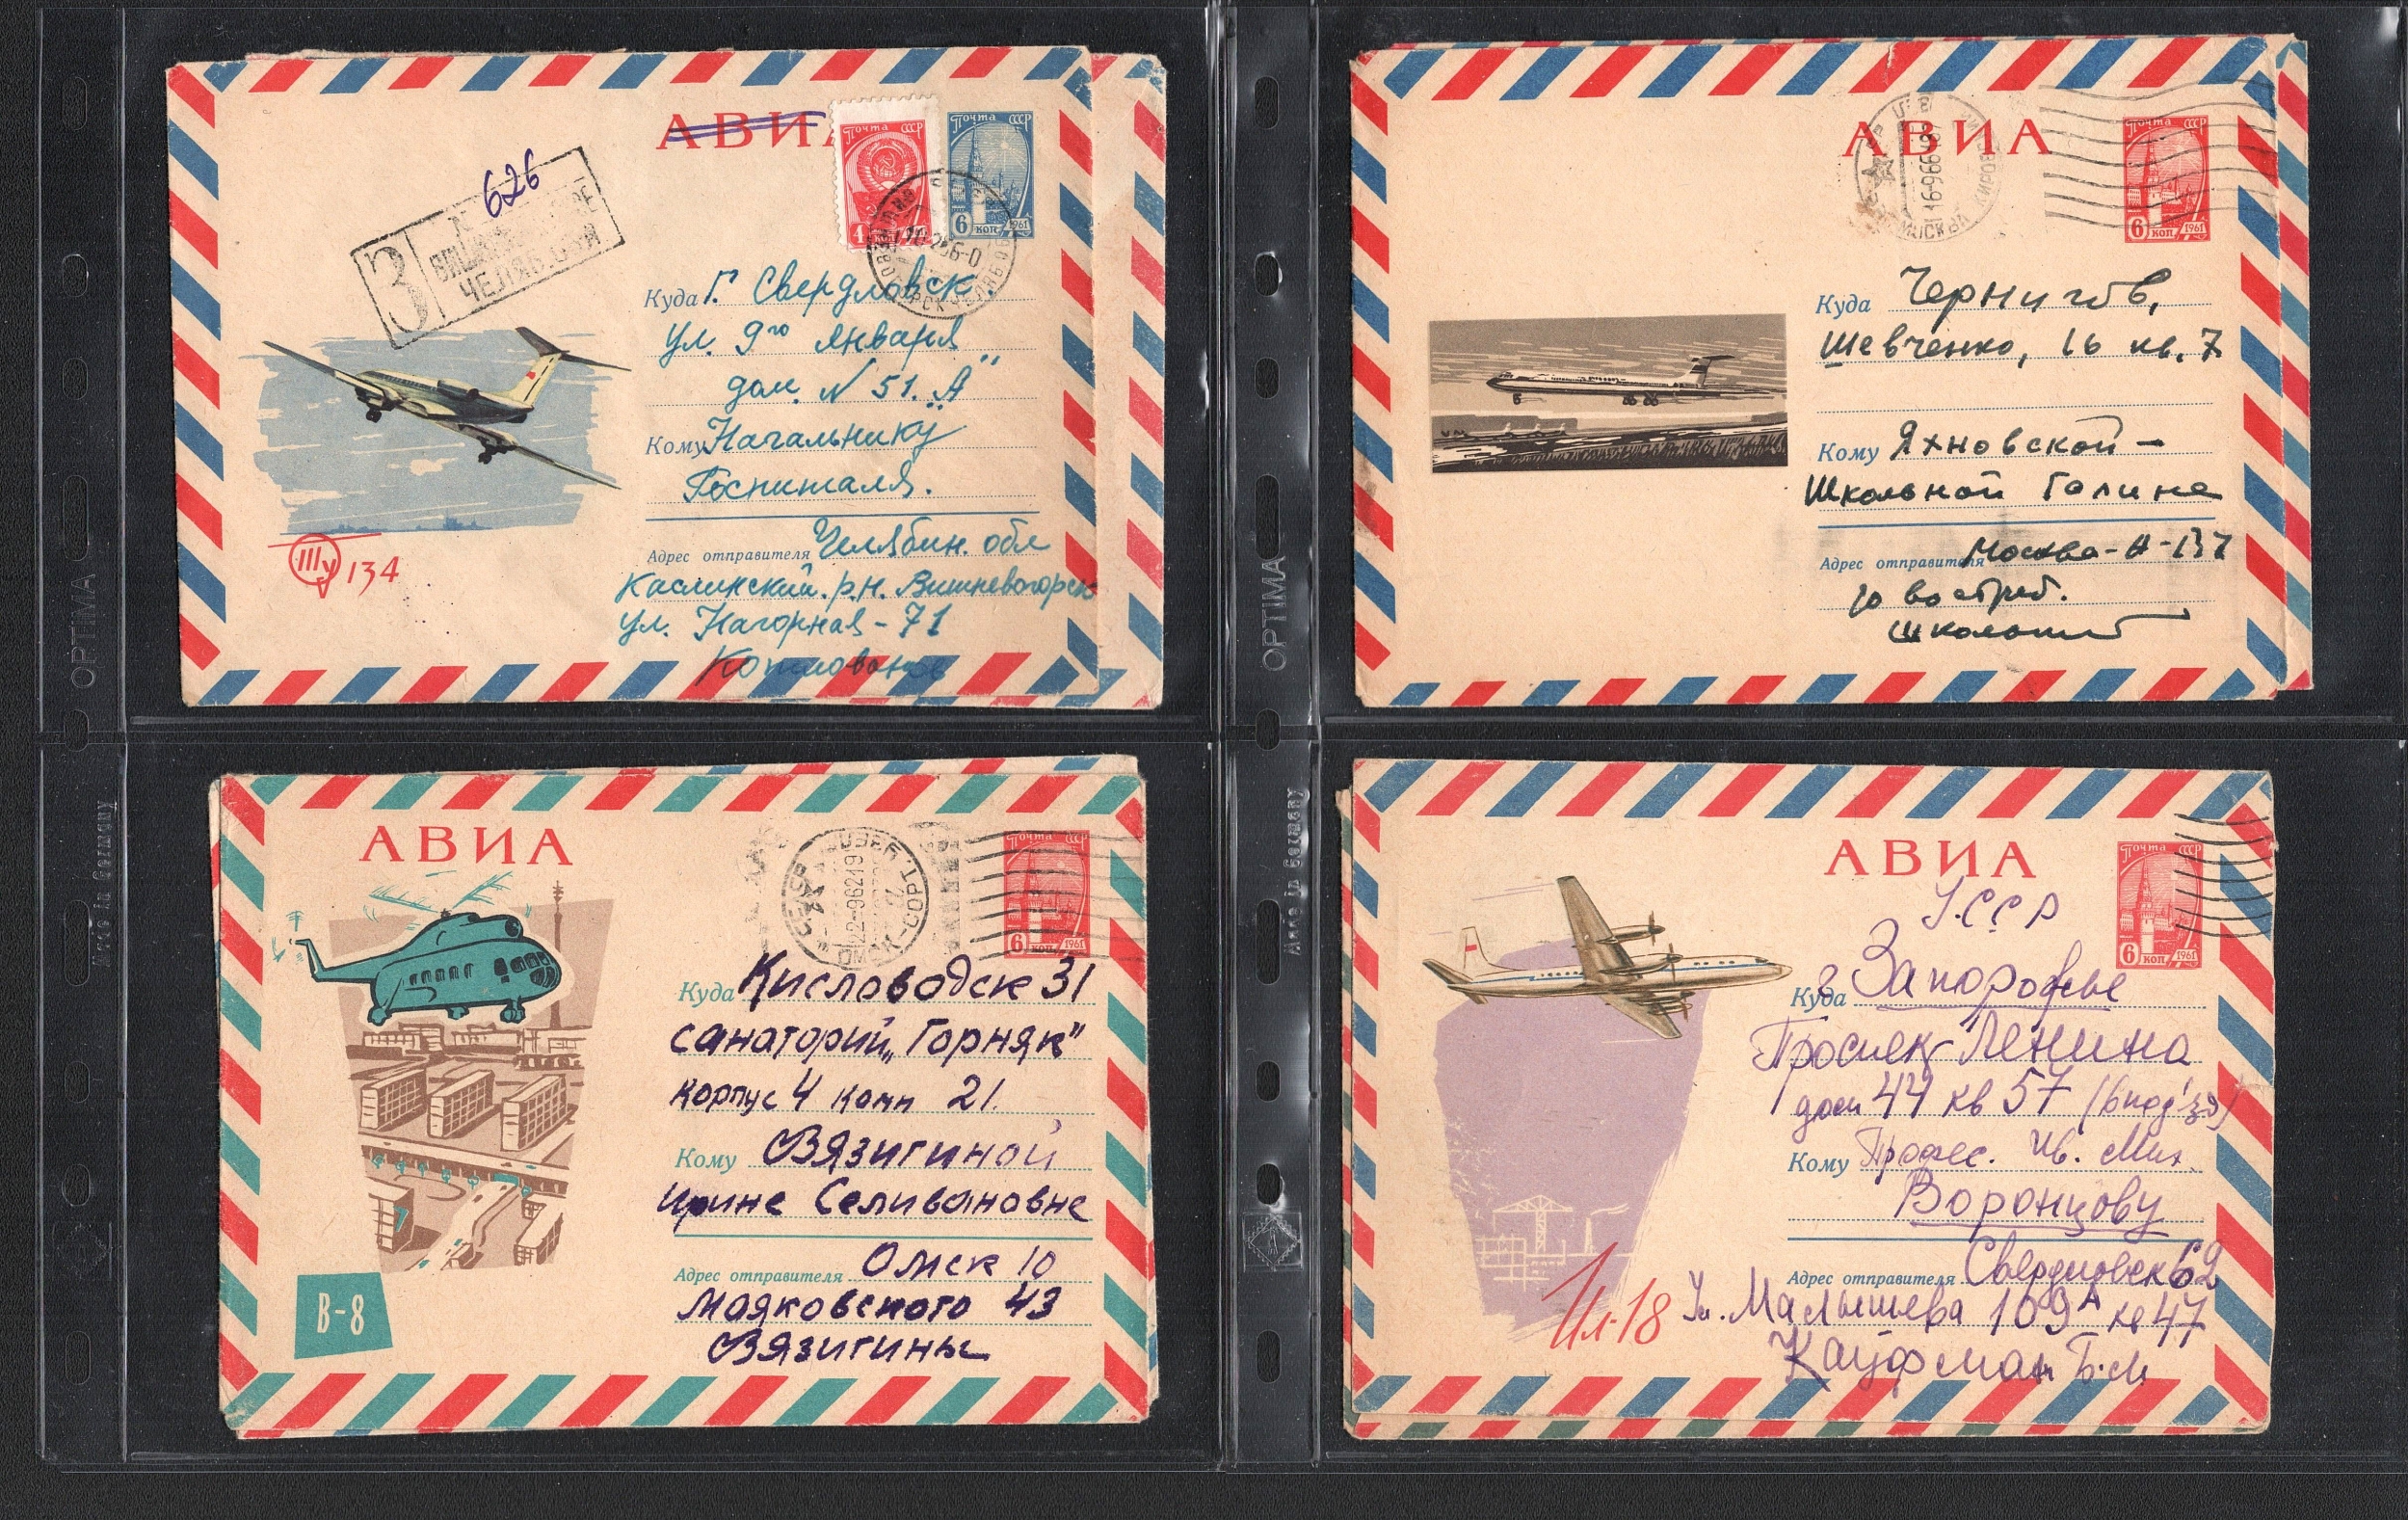 АВИА
626
Почта СССР
4
Почта СССР
6 коп 1961
3
ЧЕЛЯБ.
Куда Г. Свердловск.
ул. 9го января
дом. N 51. "А"
Кому Начальнику
Госпиталя.
Адрес отправителя Челябин. обл
Каслинский. р.н. Вишневогорск
ул. Нагорная - 71
Ту 134
АВИА
Почта СССР
6 коп 1961
МОСКВА
Куда Чернигов,
Шевченко, 16 кв. 7
Кому Яхновской-
Школьной Галине
Адрес отправителя Москва-А-137
до востреб.
АВИА
Почта СССР
6 коп 1961
Куда Кисловодск 31
санаторий „Горняк"
корпус 4 комн 21.
Кому Вязигиной
Ирине Селивановне
Адрес отправителя Омск 10
Маяковского 43
Вязигины
В-8
АВИА
Почта СССР
6 коп 1961
УССР
Куда г Запорожье
Проспек Ленина
дом 44 кв 57
Кому Профес. Ив. Мих.
Воронцову
Адрес отправителя Свердловск 62
Ул. Малышева 109А кв 47
Кауфман Б.М.
Ил-18
OPTIMA
OPTIMA
Made in Germany
Made in Germany